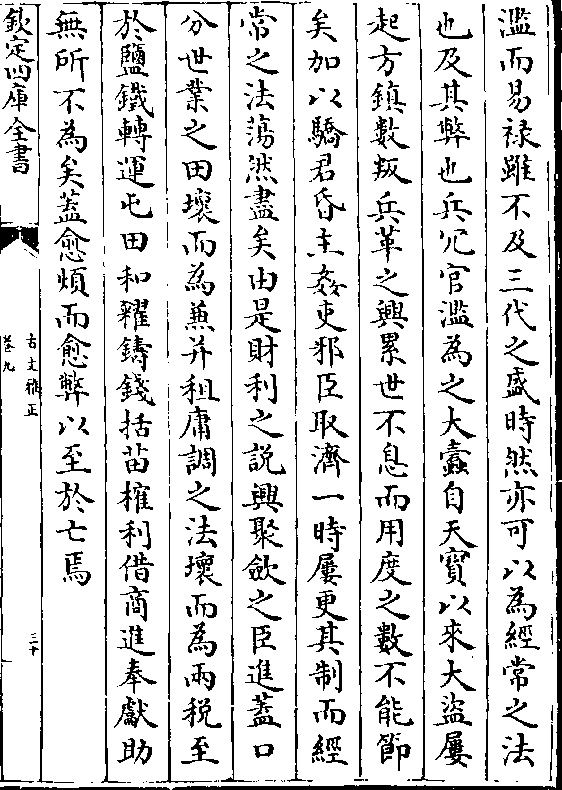 濫而易禄雖不及三代之盛時然亦可以為經常之法
也及其弊也兵冗官濫為之大蠹自天寳以來大盜屢
起方鎮數叛兵革之興累世不息而用度之數不能節
矣加以驕君昏主姦吏邪臣取濟一時屢更其制而經
常之法蕩然盡矣由是財利之説興聚歛之臣進蓋口
分世業之田壞而為兼并租庸調之法壞而為兩税至
於鹽鐵轉運屯田和糴鑄錢括苗榷利借商進奉獻助
無所不為矣蓋愈煩而愈弊以至於亡焉
欽定四庫全書
古文雅正
卷九
三十